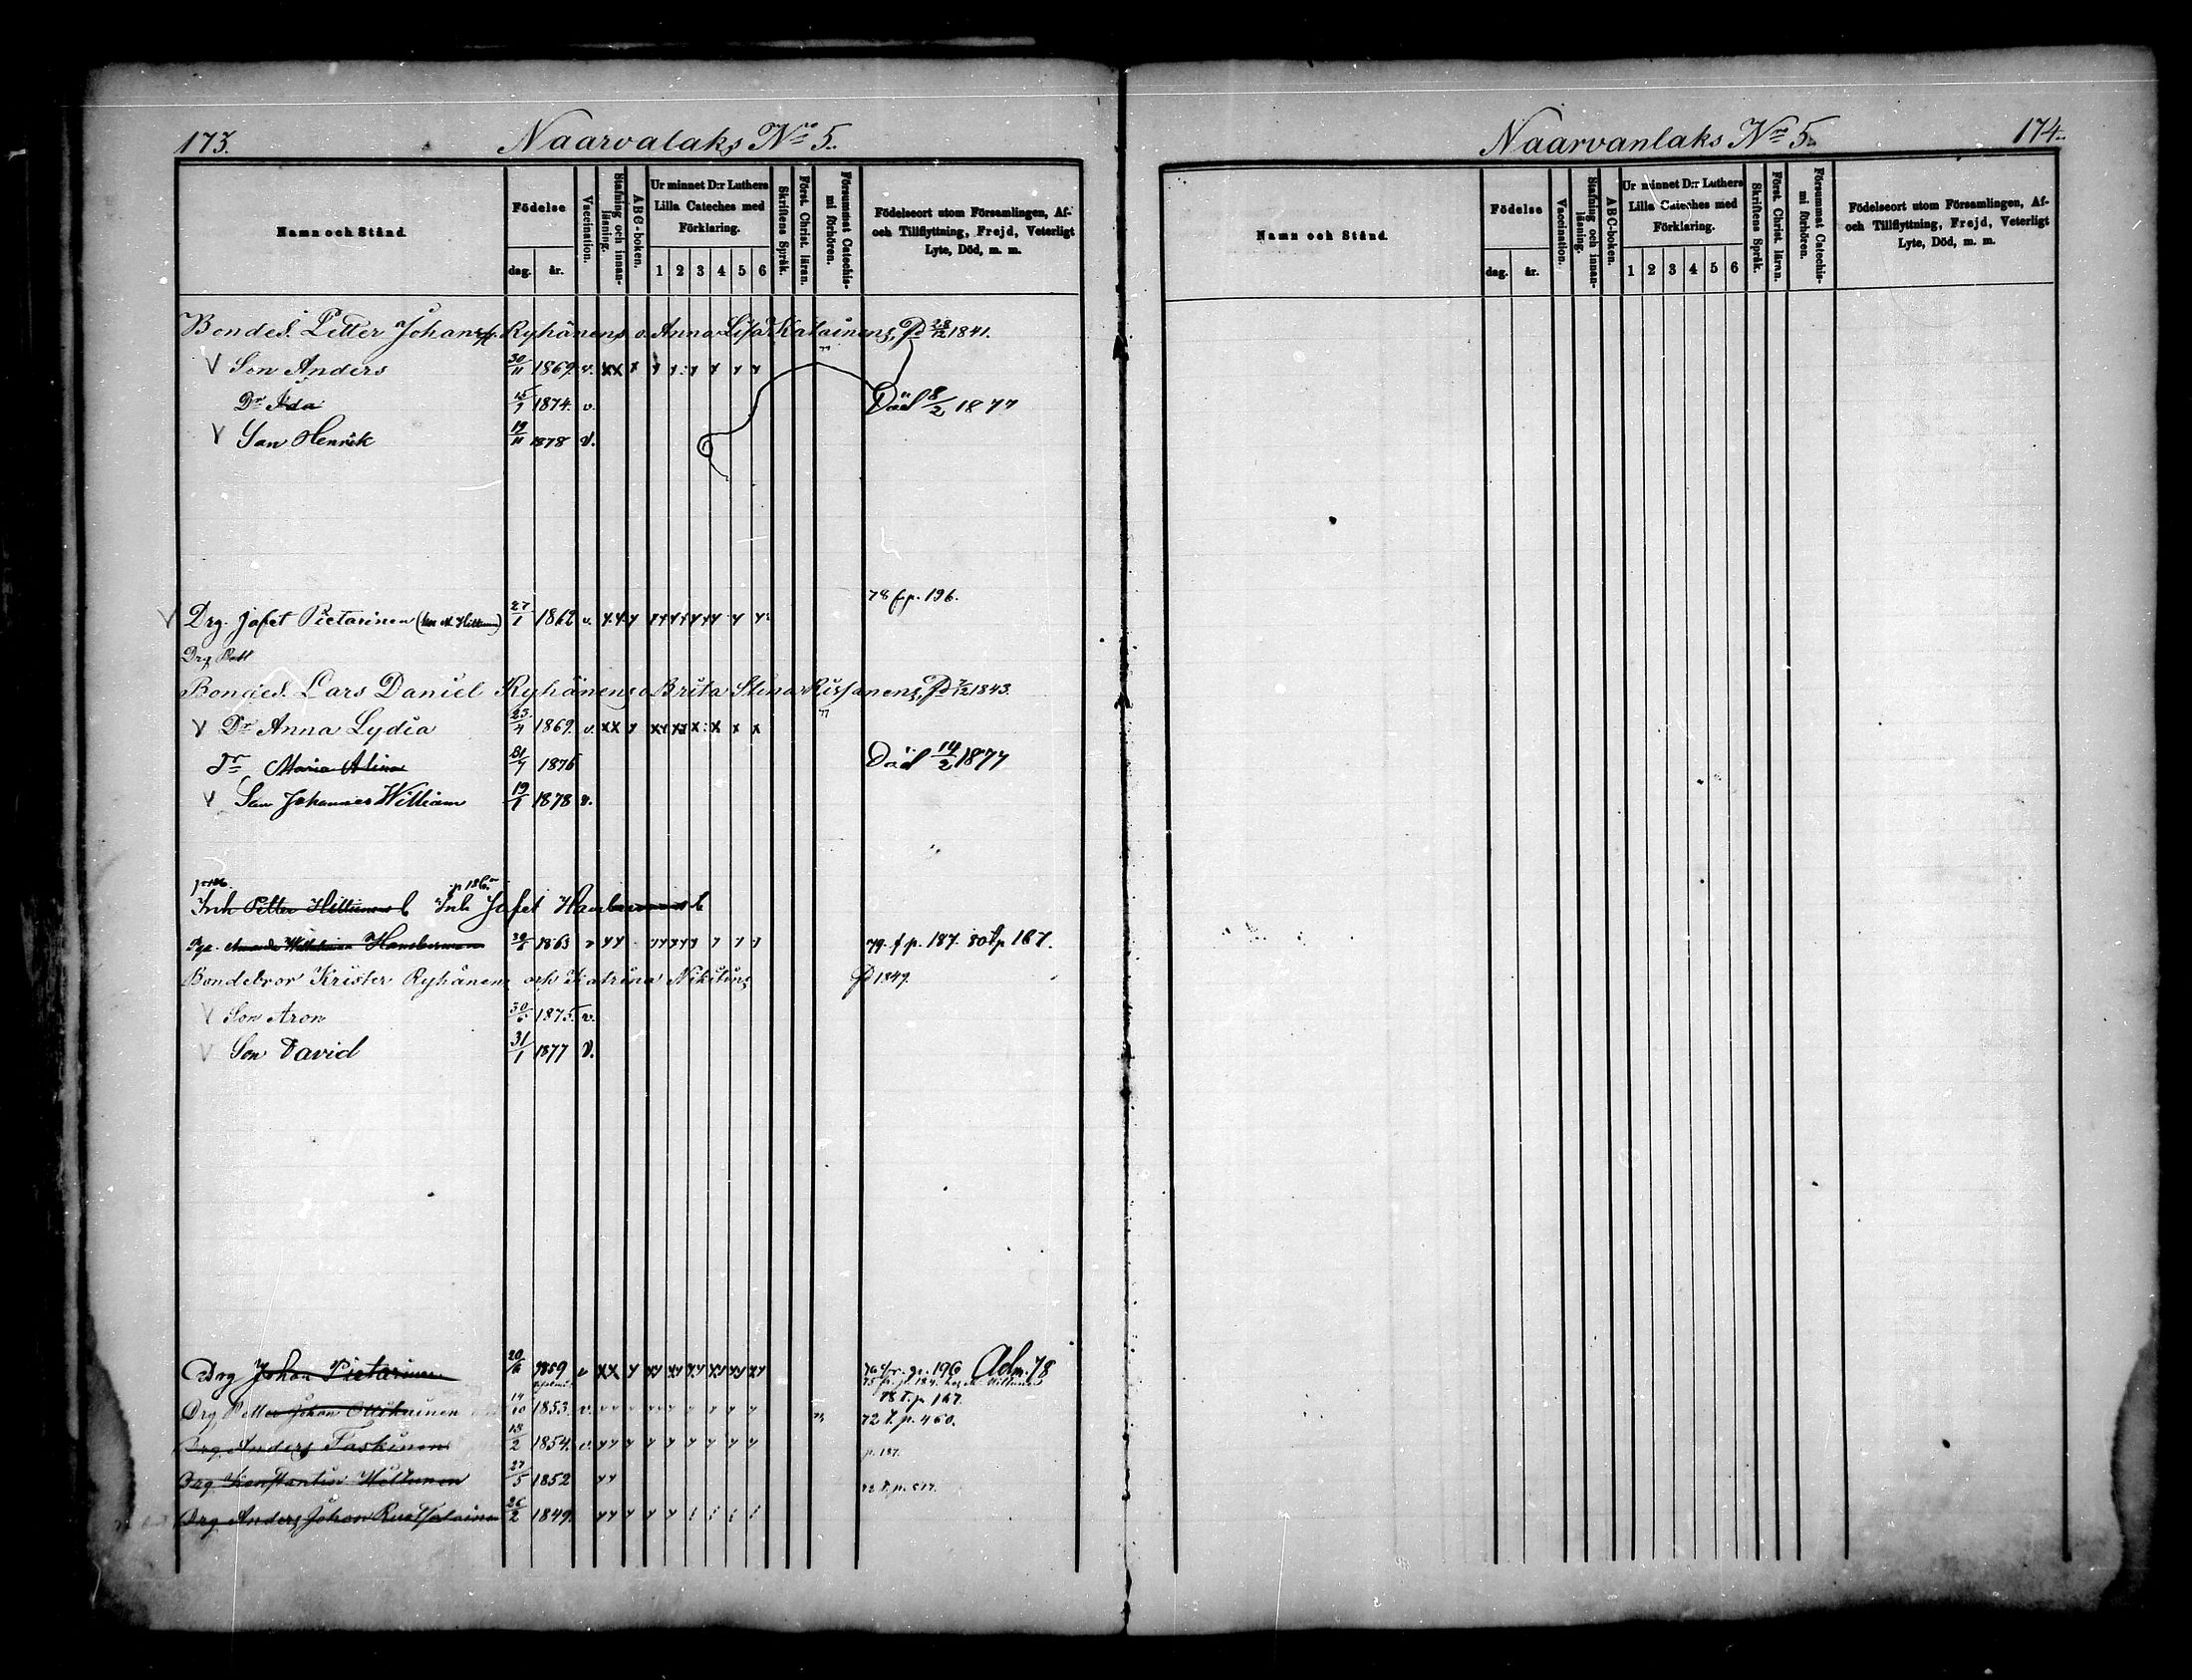 173.
Naarvalaks No 5.
Namn och Stånd.
Födelse
dag. år.
Vaccination.
Stafning och innanläsning.
ABC-boken.
Ur minnet D:r Luthers Lilla Cateches med Förklaring.
1 2 3 4 5 6
Skriftens Språk.
Först. Christ. läran.
Försummat Catechismi förhören.
Födelseort utom Församlingen, Af- och Tillflyttning, Frejd, Veterligt Lyte, Död, m. m.
Bonded. Petter Johan Ryhänens o. Anna Lisa 28/12 1841.
V Son Anders 30/11 1869. v. x x x
Dr Ida 15/1 1874. v. Död 8/2 1877
V Son Henrik 19/11 1878 v.
78 f p. 196.
V Drg. Jafet Pietarinen 27/1 1862 v.
Drg Pett
Lars Daniel Ryhänens o Brita Stina 7/12 1843.
V Dr Anna Lydia 23/4 1869. v. x x
Dr Maria Alina 31/7 1876 Död 14/2 1877
V Son Johannes William 19/1 1878 v.
p 186.
Inh Petter Hiltunens Inh Jafet
1863 79. f p. 187. 80 t p 187.
Bondebror Krister Ryhänens och Katrina Nikitins 1849.
V Son Aron 30/6 1875. v.
V Son David 31/1 1877 v.
Drg Johan Pietarinen 20/6 1859 v p. 196 Adm. 78
78 t. p 167
Drg Petter Johan 14/10 1853. v. 72 t. p. 460.
Drg Anders Taskinen 18/2 1854. v. p. 187.
Drg Konstantin Hiltunen 27/5 1852
Drg Anders Johan 26/2 1849.
Naarvanlaks No 5.
174.
Namn och Stånd.
Födelse
dag. år.
Vaccination.
Stafning och innanläsning.
ABC-boken.
Ur minnet D:r Luthers Lilla Cateches med Förklaring.
1 2 3 4 5 6
Skriftens Språk.
Först. Christ. läran.
Försummat Catechismi förhören.
Födelseort utom Församlingen, Af- och Tillflyttning, Frejd, Veterligt Lyte, Död, m. m.